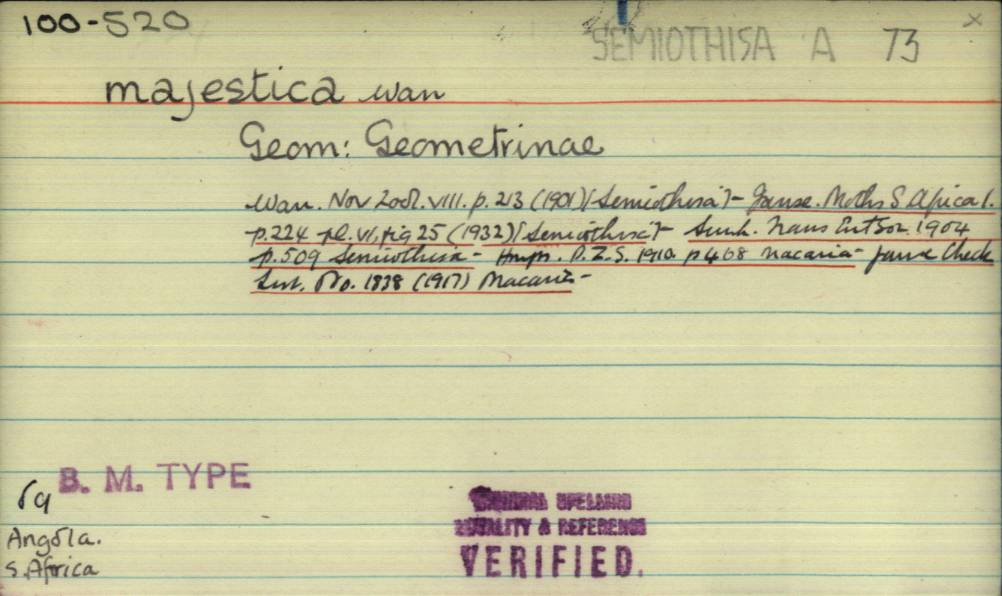 100-520 SEMIOTHISA A 73 x
majestica Warr
Geom: Geometrinae
Warr. Nov Zool. VIII. p. 213 (1901) (Semiothisa) - Janse. Moths S Africa I.
p.224 pl. VI, fig 25 (1932) (Semiothisa) - Swinh. Trans Ent Soc. 1904
p.509 Semiothisa - Hmps. P.Z.S. 1910. p468 Macaria - Janse Check
List. No. 1838 (1917) Macaria -
B. M. TYPE
Angola.
S. Africa
ORIGINAL SPELLING
LOCALITY & REFERENCE
VERIFIED.